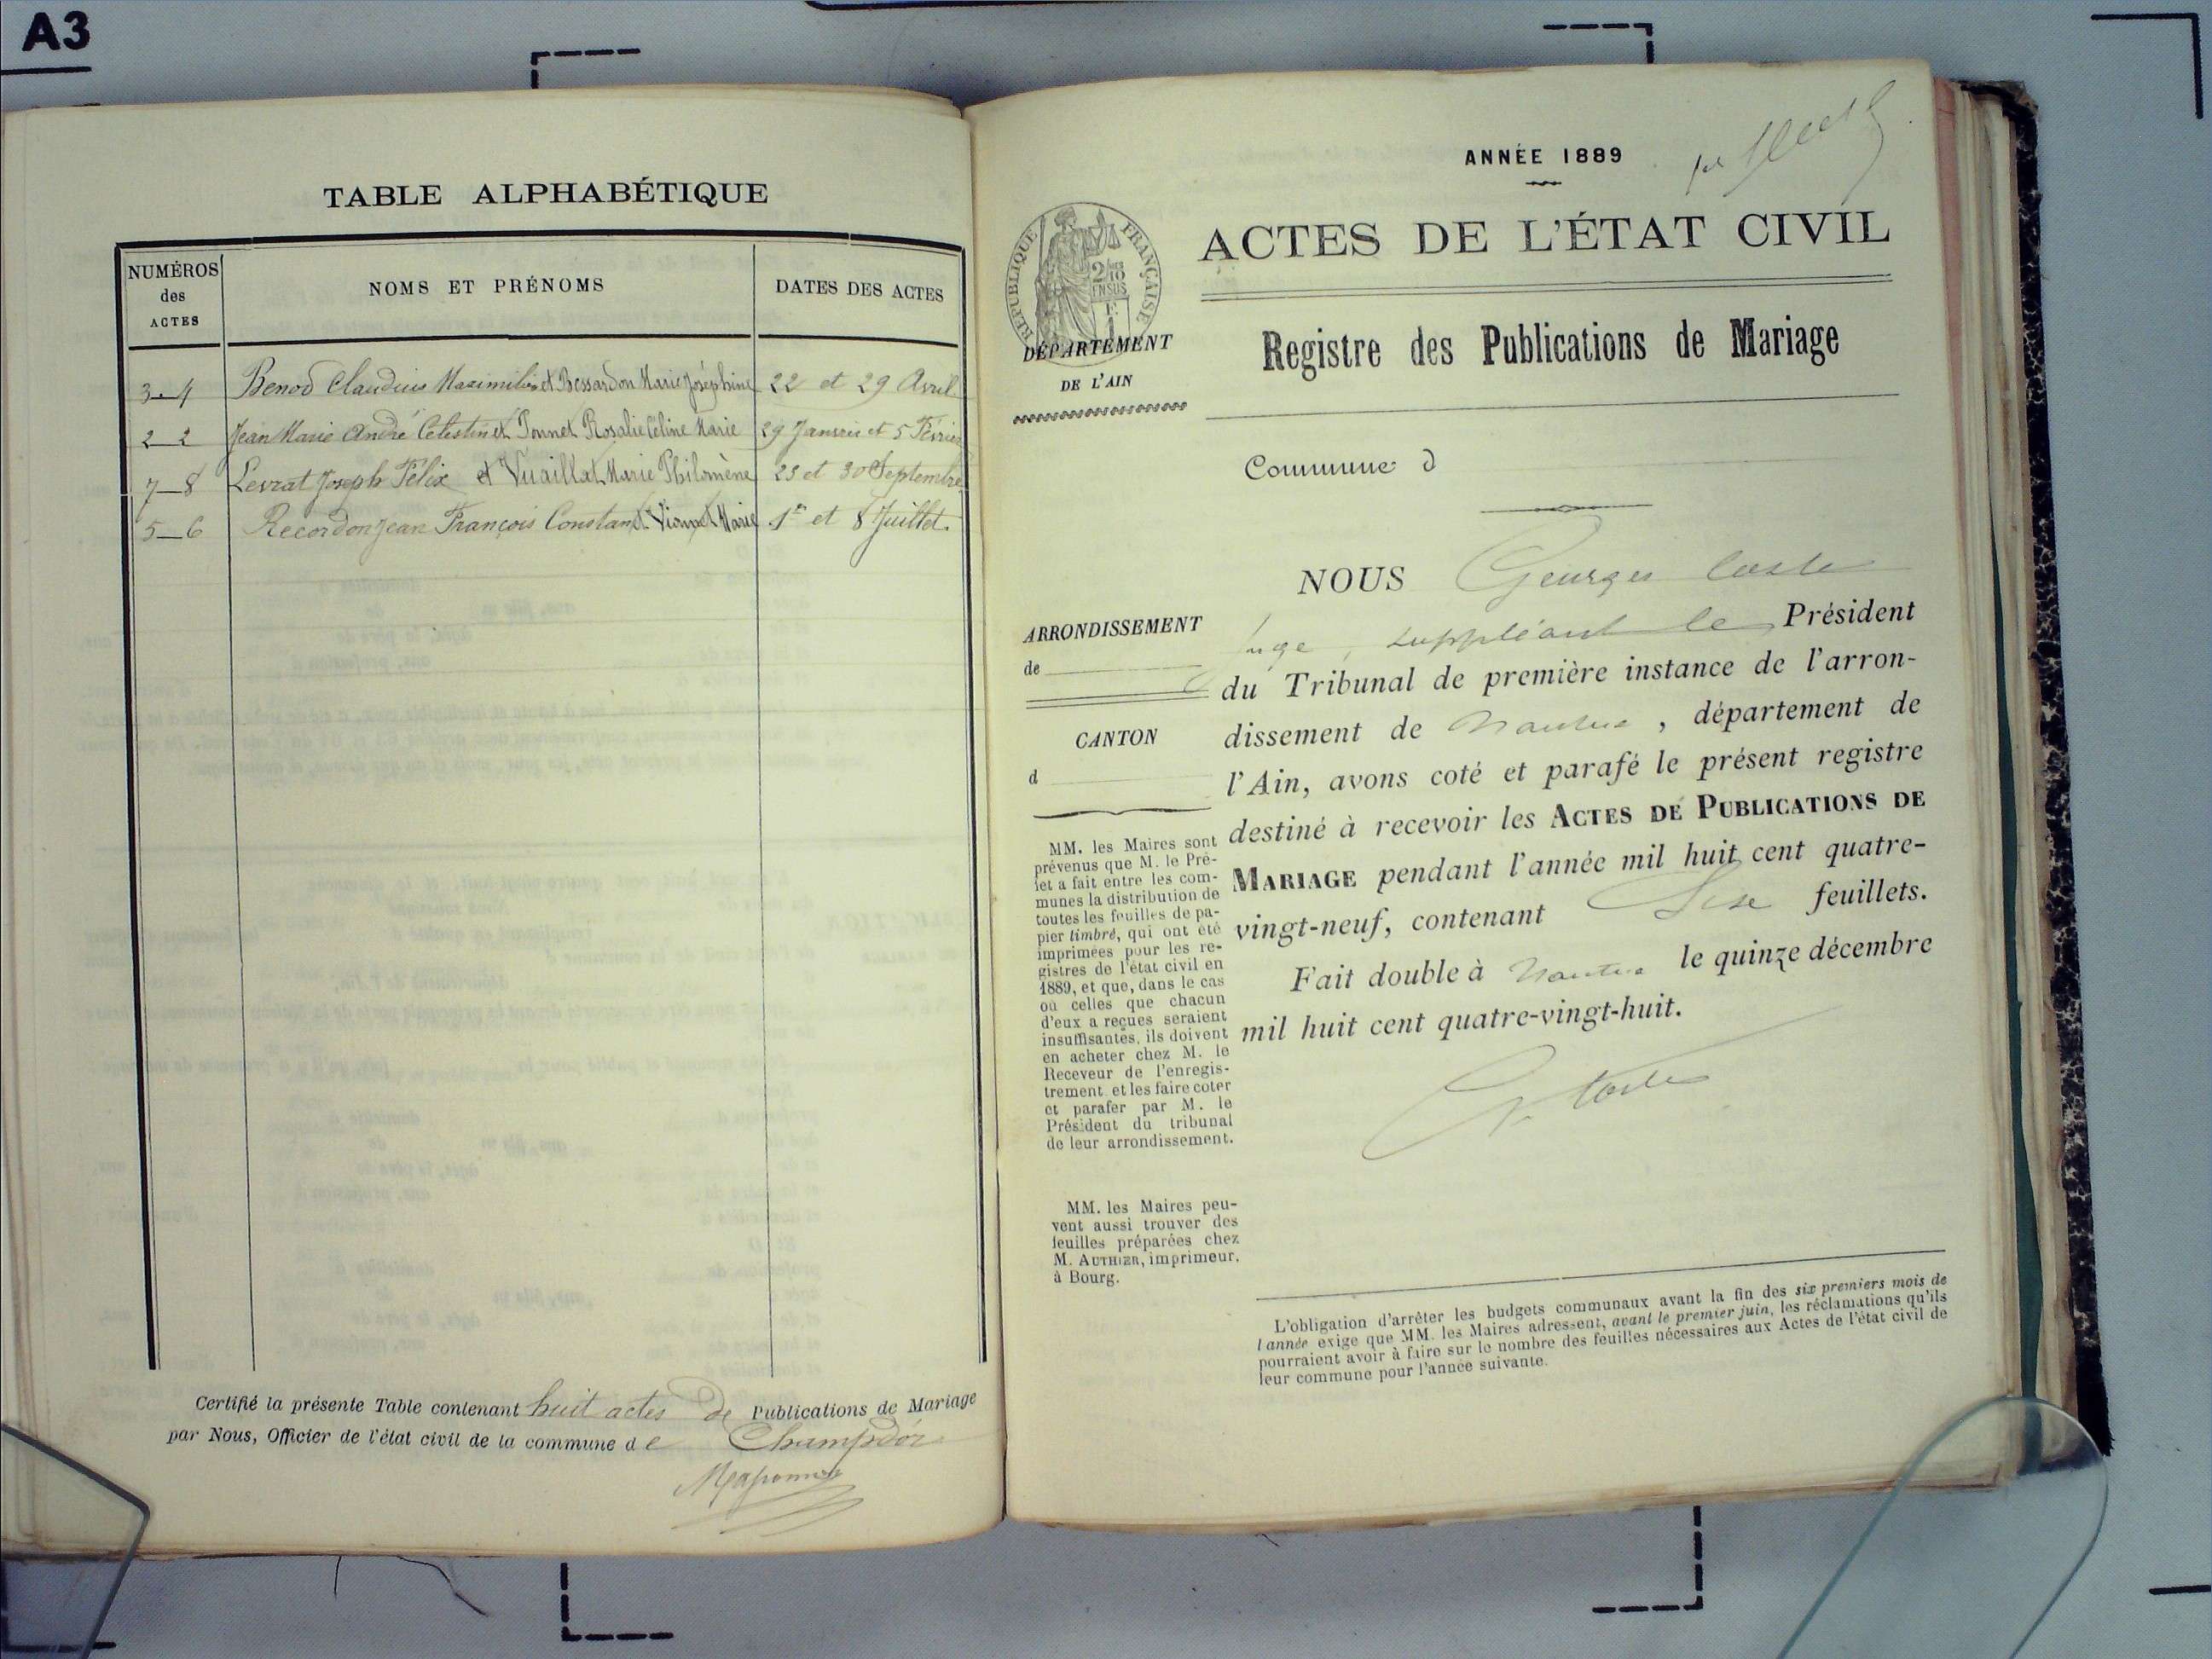 A3
TABLE ALPHABÉTIQUE
NUMÉROS des ACTES
NOMS ET PRÉNOMS
DATES DES ACTES
3-4 Benod Claudius Maximilin et Bessardon Marie Joséphine 22 et 29 Avril
2_2 Jean Marie André Célestin et Ponnet Rosalie Céline Marie 29 Janvier et 5 Février
7_8 Levrat Joseph Félix et Vuaillat Marie Philomène 23 et 30 Septembre
5_6 Recordon Jean François Constant et Marie 1er et 8 Juillet
Certifié la présente Table contenant huit actes de Publications de Mariage
par Nous, Officier de l'état civil de la commune de Champdor
ANNÉE 1889
ACTES DE L'ÉTAT CIVIL
RÉPUBLIQUE FRANÇAISE
DÉPARTEMENT
DE L'AIN
Registre des Publications de Mariage
Commune d
ARRONDISSEMENT
de
CANTON
d
MM. les Maires sont
prévenus que M. le Pré-
fet a fait entre les com-
munes la distribution de
toutes les feuilles de pa-
pier timbré, qui ont été
imprimées pour les re-
gistres de l'état civil en
1889, et que, dans le cas
où celles que chacun
d'eux a reçues seraient
insuffisantes, ils doivent
en acheter chez M. le
Receveur de l'enregis-
trement et les faire coter
et parafer par M. le
Président du tribunal
de leur arrondissement.
MM. les Maires peu-
vent aussi trouver des
feuilles préparées chez
M. AUTHIER, imprimeur,
à Bourg.
NOUS Georges Coste
Juge, suppléant le Président
du Tribunal de première instance de l'arron-
dissement de Nantua, département de
l'Ain, avons coté et parafé le présent registre
destiné à recevoir les ACTES DE PUBLICATIONS DE
MARIAGE pendant l'année mil huit cent quatre-
vingt-neuf, contenant Six feuillets.
Fait double à Nantua le quinze décembre
mil huit cent quatre-vingt-huit.
G. Coste
L'obligation d'arrêter les budgets communaux avant la fin des six premiers mois de
l'année exige que MM. les Maires adressent, avant le premier juin, les réclamations qu'ils
pourraient avoir à faire sur le nombre des feuilles nécessaires aux Actes de l'état civil de
leur commune pour l'année suivante.